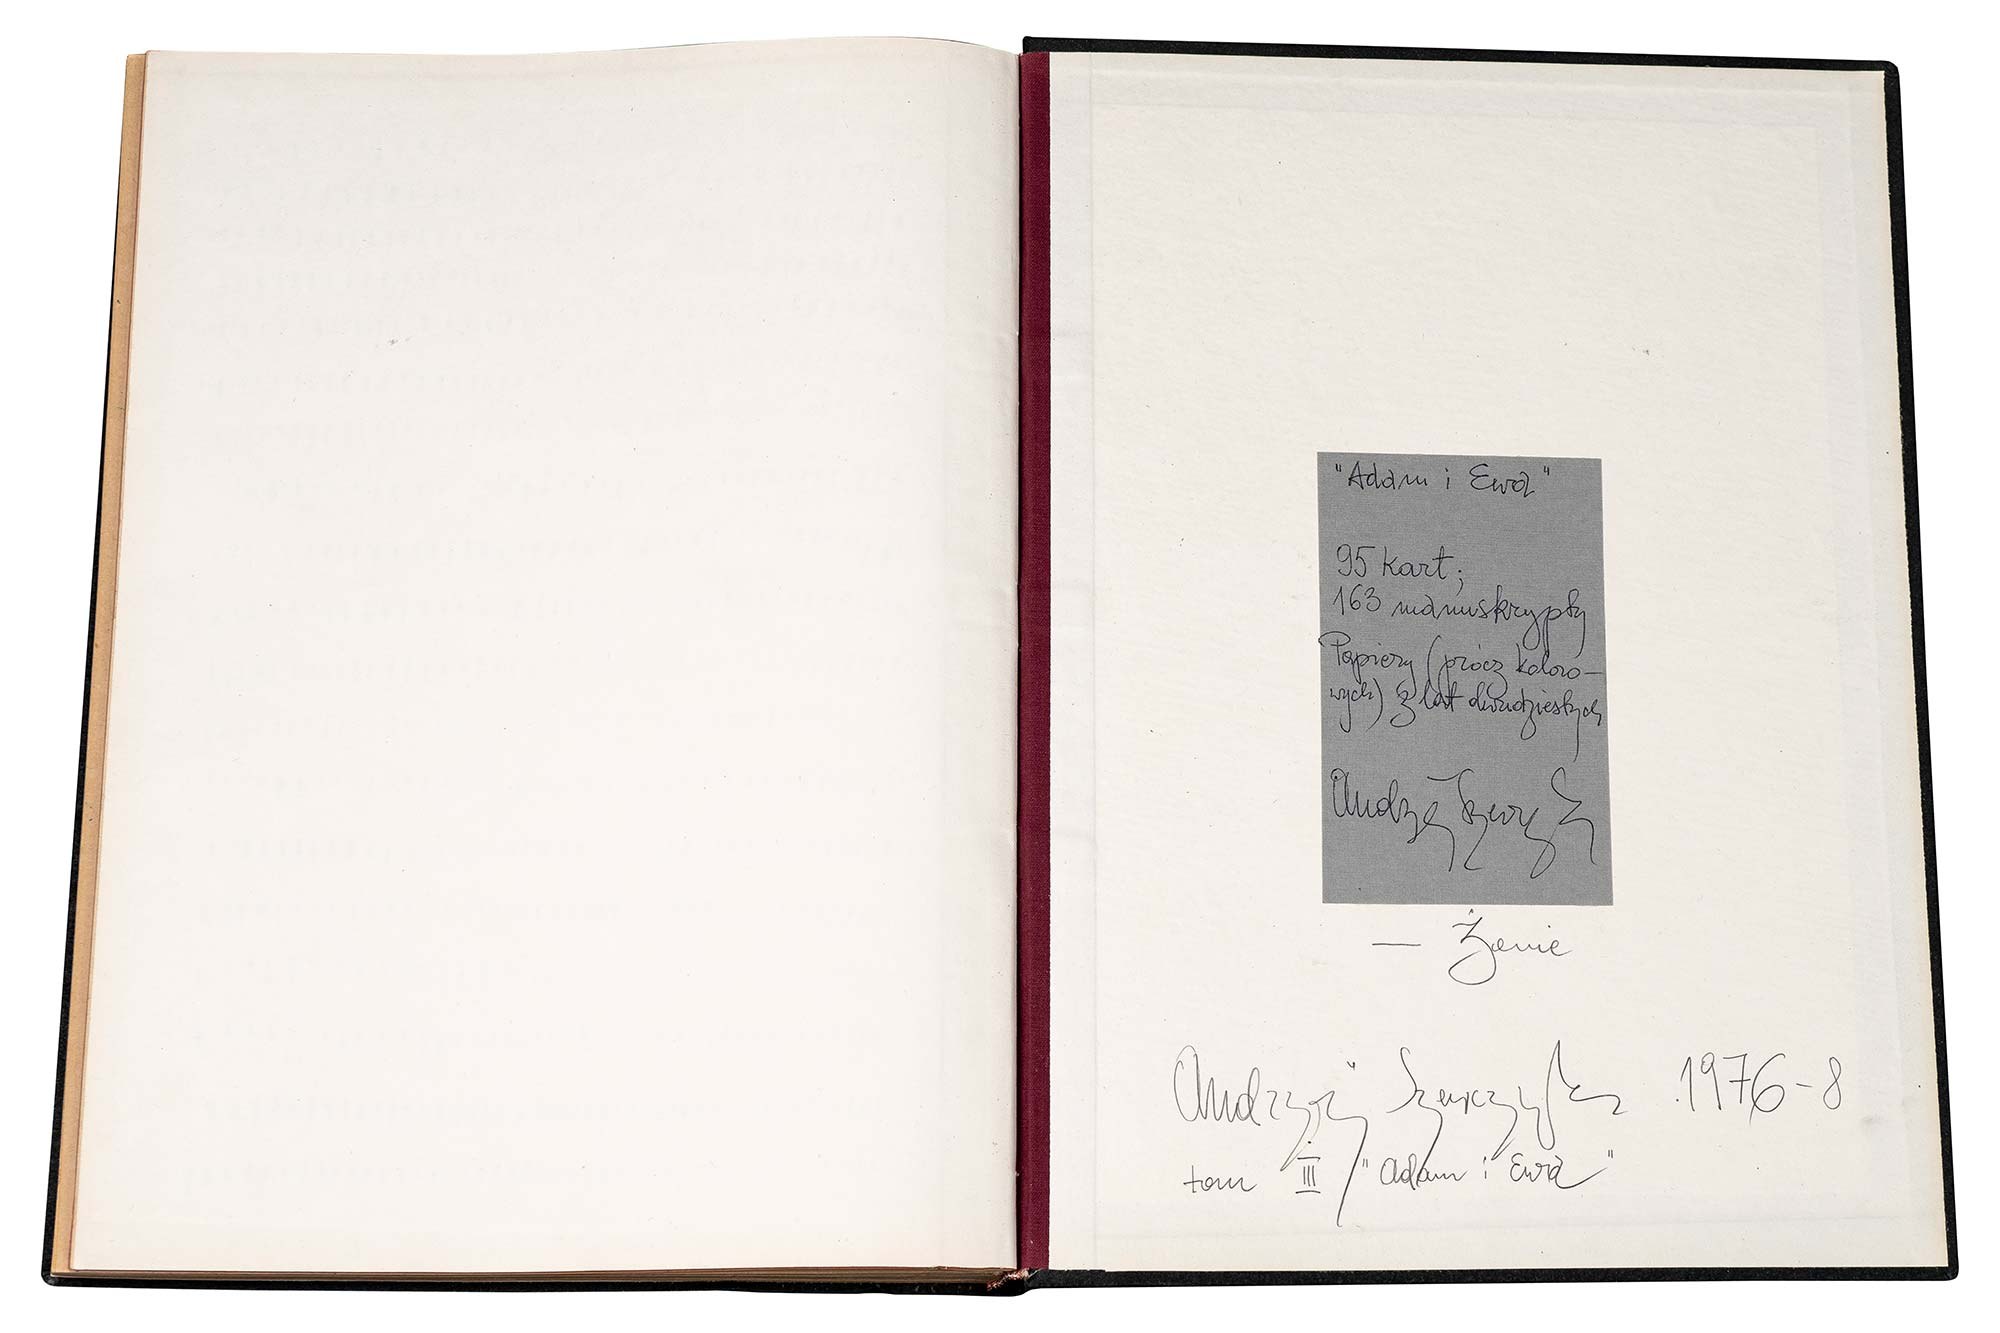 "Adam i Ewa"
95 kart;
163 manuskrypty
Papiery (prócz koloro-
wych) z lat dwudziestych
Andrzej Szewczyk
— Żonie
Andrzej Szewczyk 1976-8
tom III "Adam i Ewa"